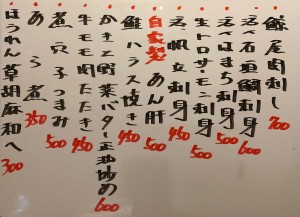 鯨尾肉刺し 700
活〆石垣鯛刺身 600
活〆はまち刺身 500
生トロサーモン刺身 500
活帆立刺身 450
自家製 あん肝 500
鮭ハラス焼き 450
かきと野菜バター正油炒め 600
牛モモ肉たたき 450
煮穴子つまみ 500
あら煮 350
ほうれん草胡麻和へ 300